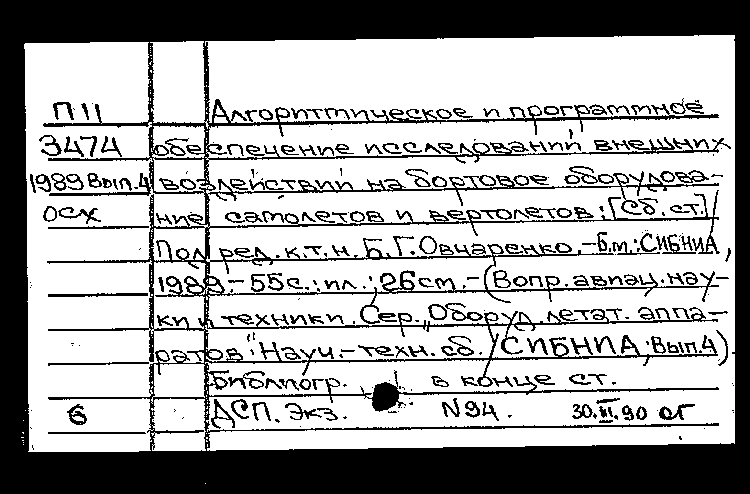 П 11 Алгоритмическое и программное
3474 обеспечение исследований внешних
1989 Вып.4 воздействий на бортовое оборудова-
осх ние самолетов и вертолетов: [Сб. ст.] /
Под ред. к.т.н. Б.Г. Овчаренко. - Б.м.: СИБНИА,
1989. - 55с.: ил.; 26см. - (Вопр. авиац. нау-
ки и техники. Сер. „Оборуд. летат. аппа-
ратов" Науч.-техн. сб. / СИБНИА; Вып.4).
Библиогр. в конце ст.
6 ДСП. Экз. N 94. 30.III.90 ог